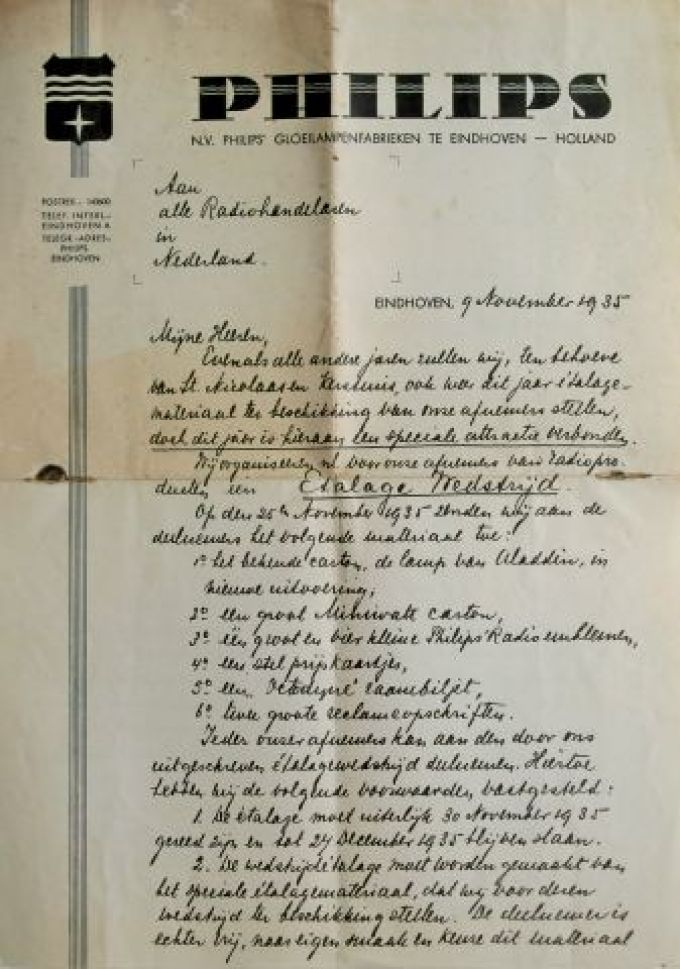 PHILIPS
N.V. PHILIPS' GLOEILAMPENFABRIEKEN TE EINDHOVEN — HOLLAND
POSTREK. - 140600
TELEF. INTERL.-
EINDHOVEN A
TELEGR.-ADRES-
PHILIPS
EINDHOVEN
Aan
alle Radiohandelaren
in
Nederland.
EINDHOVEN, 9 November 1935
Mijne Heeren,
Evenals alle andere jaren zullen wij, ten behoeve
van St. Nicolaas en Kerstmis, ook weer dit jaar étalage-
materiaal ter beschikking van onze afnemers stellen,
doch dit jaar is hieraan een speciale attractie verbonden.
Wij organiseeren nl. voor onze afnemers van radiopro-
ducten een Etalage Wedstrijd.
Op den 25en November 1935 zenden wij aan de
deelnemers het volgende materiaal toe:
1º het bekende carton, de lamp van Aladdin, in
nieuwe uitvoering;
2º een groot Miniwatt carton,
3º één groot en vier kleine Philips' Radio emblemen,
4º een stel prijskaartjes,
5º een "Octodyne" raambiljet,
6º twee groote reclameopschriften.
Ieder onzer afnemers kan aan den door ons
uitgeschreven étalagewedstrijd deelnemen. Hiertoe
hebben wij de volgende voorwaarden vastgesteld:
1. De étalage moet uiterlijk 30 November 1935
gereed zijn en tot 24 December 1935 blijven staan.
2. De wedstrijdétalage moet worden gemaakt van
het speciale étalagemateriaal, dat wij voor dezen
wedstrijd ter beschikking stellen. De deelnemer is
echter vrij, naar eigen smaak en keuze dit materiaal